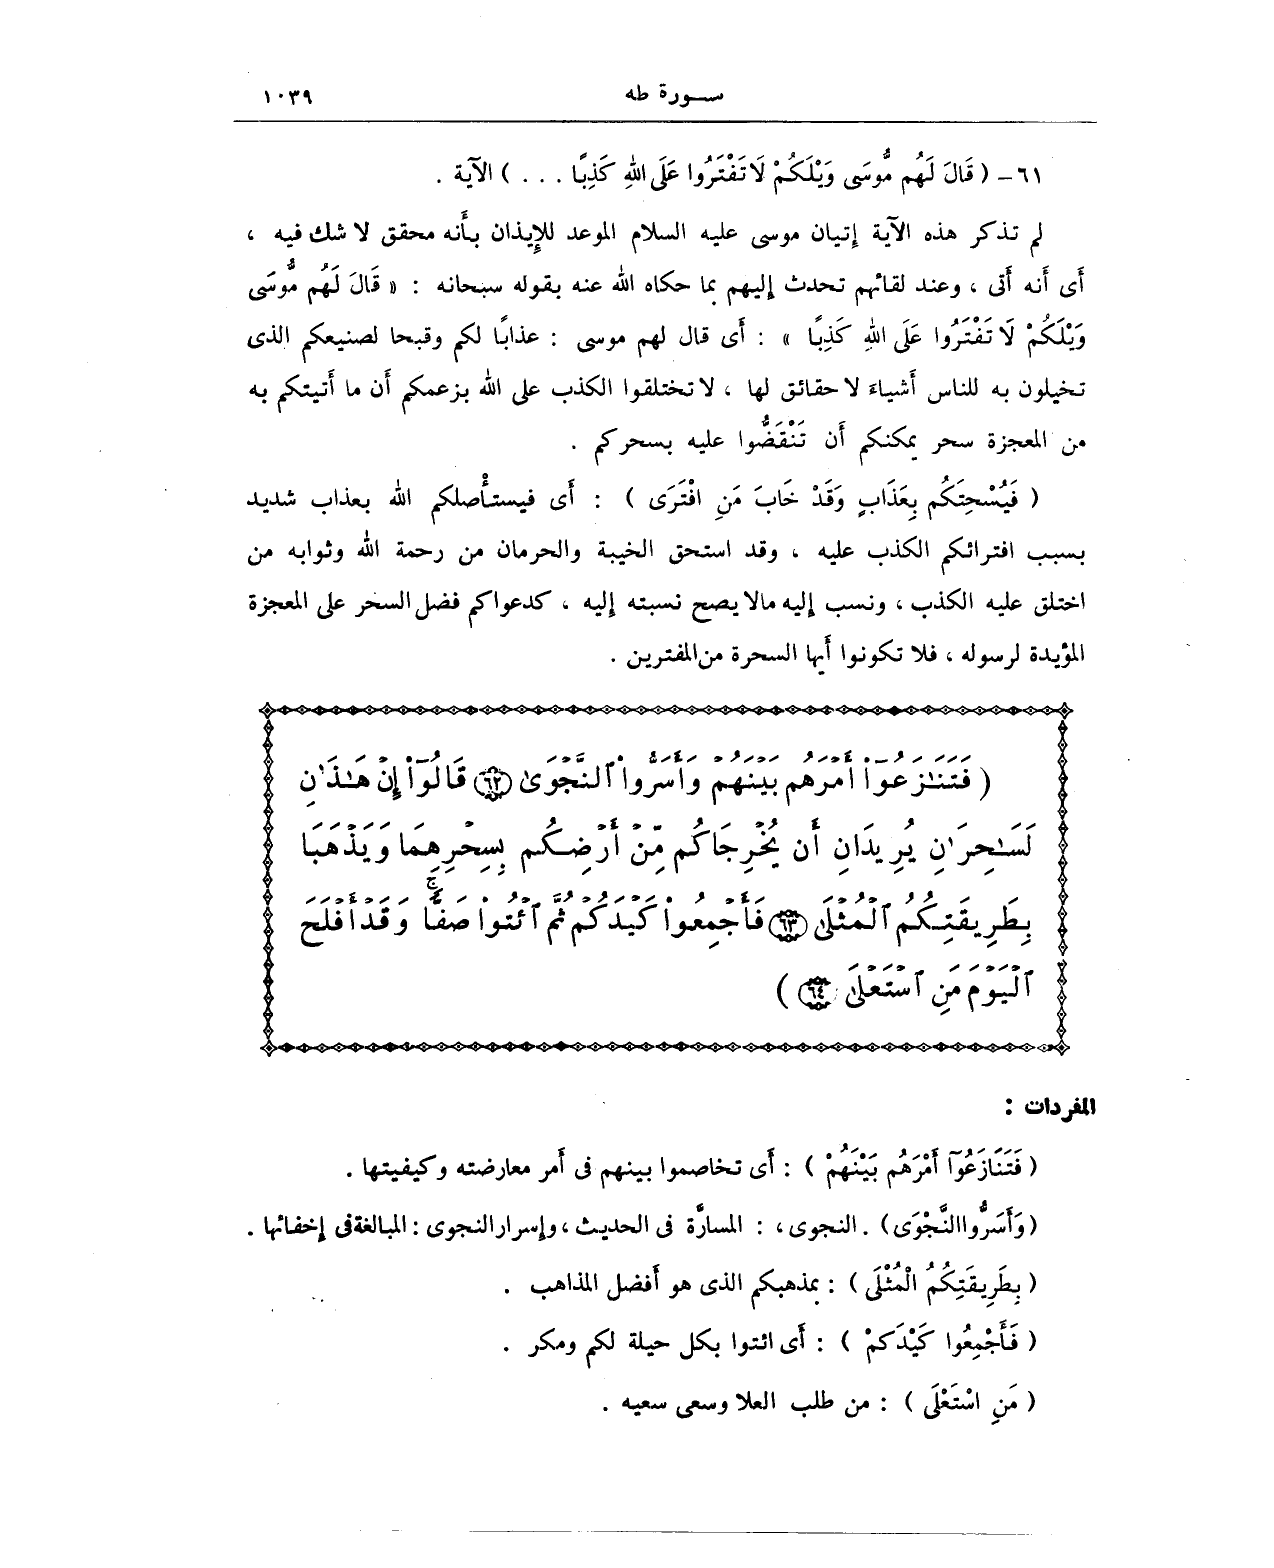 سورة طه ١٠٣٩
٦١ – ( قَالَ لَهُم مُّوسَى وَيْلَكُمْ لَا تَفْتَرُوا عَلَى اللهِ كَذِبًا . . . ) الآية .
لم تذكر هذه الآية إتيان موسى عليه السلام الموعد للإيذان بأنه محقق لا شك فيه ،
أى أنه أتى ، وعند لقائهم تحدث إليهم بما حكاه الله عنه بقوله سبحانه : « قَالَ لَهُم مُّوسَى
وَيْلَكُمْ لَا تَفْتَرُوا عَلَى اللهِ كَذِبًا » : أى قال لهم موسى : عذابًا لكم وقبحا لصنيعكم الذى
تخيلون به للناس أشياءَ لا حقائق لها ، لا تختلقوا الكذب على الله بزعمكم أن ما أتيتكم به
من المعجزة سحر يمكنكم أن تَنْقَضُّوا عليه بسحركم .
( فَيُسْحِتَكُم بِعَذَابٍ وَقَدْ خَابَ مَنِ افْتَرَى ) : أى فيستأْصلكم الله بعذاب شديد
بسبب افترائكم الكذب عليه ، وقد استحق الخيبة والحرمان من رحمة الله وثوابه من
اختلق عليه الكذب ، ونسب إليه مالا يصح نسبته إليه ، كدعواكم فضل السحر على المعجزة
المؤيدة لرسوله ، فلا تكونوا أيها السحرة من المفترين .
( فَتَنَٰزَعُوٓاْ أَمْرَهُم بَيْنَهُمْ وَأَسَرُّواْ ٱلنَّجْوَىٰ ٦٢ قَالُوٓاْ إِنْ هَٰذَٰنِ
لَسَٰحِرَٰنِ يُرِيدَانِ أَن يُخْرِجَاكُم مِّنْ أَرْضِكُم بِسِحْرِهِمَا وَيَذْهَبَا
بِطَرِيقَتِكُمُ ٱلْمُثْلَىٰ ٦٣ فَأَجْمِعُواْ كَيْدَكُمْ ثُمَّ ٱئْتُواْ صَفًّاۚ وَقَدْ أَفْلَحَ
ٱلْيَوْمَ مَنِ ٱسْتَعْلَىٰ ٦٤ )
المفردات :
( فَتَنَازَعُوٓا أَمْرَهُم بَيْنَهُمْ ) : أى تخاصموا بينهم فى أمر معارضته وكيفيتها .
( وَأَسَرُّوا النَّجْوَى ) . النجوى ، : المسارَّة فى الحديث ، وإسرار النجوى : المبالغة فى إخفائها .
( بِطَرِيقَتِكُمُ الْمُثْلَى ) : بمذهبكم الذى هو أفضل المذاهب .
( فَأَجْمِعُوا كَيْدَكُمْ ) : أى ائتوا بكل حيلة لكم ومكر .
( مَنِ اسْتَعْلَى ) : من طلب العلا وسعى سعيه .